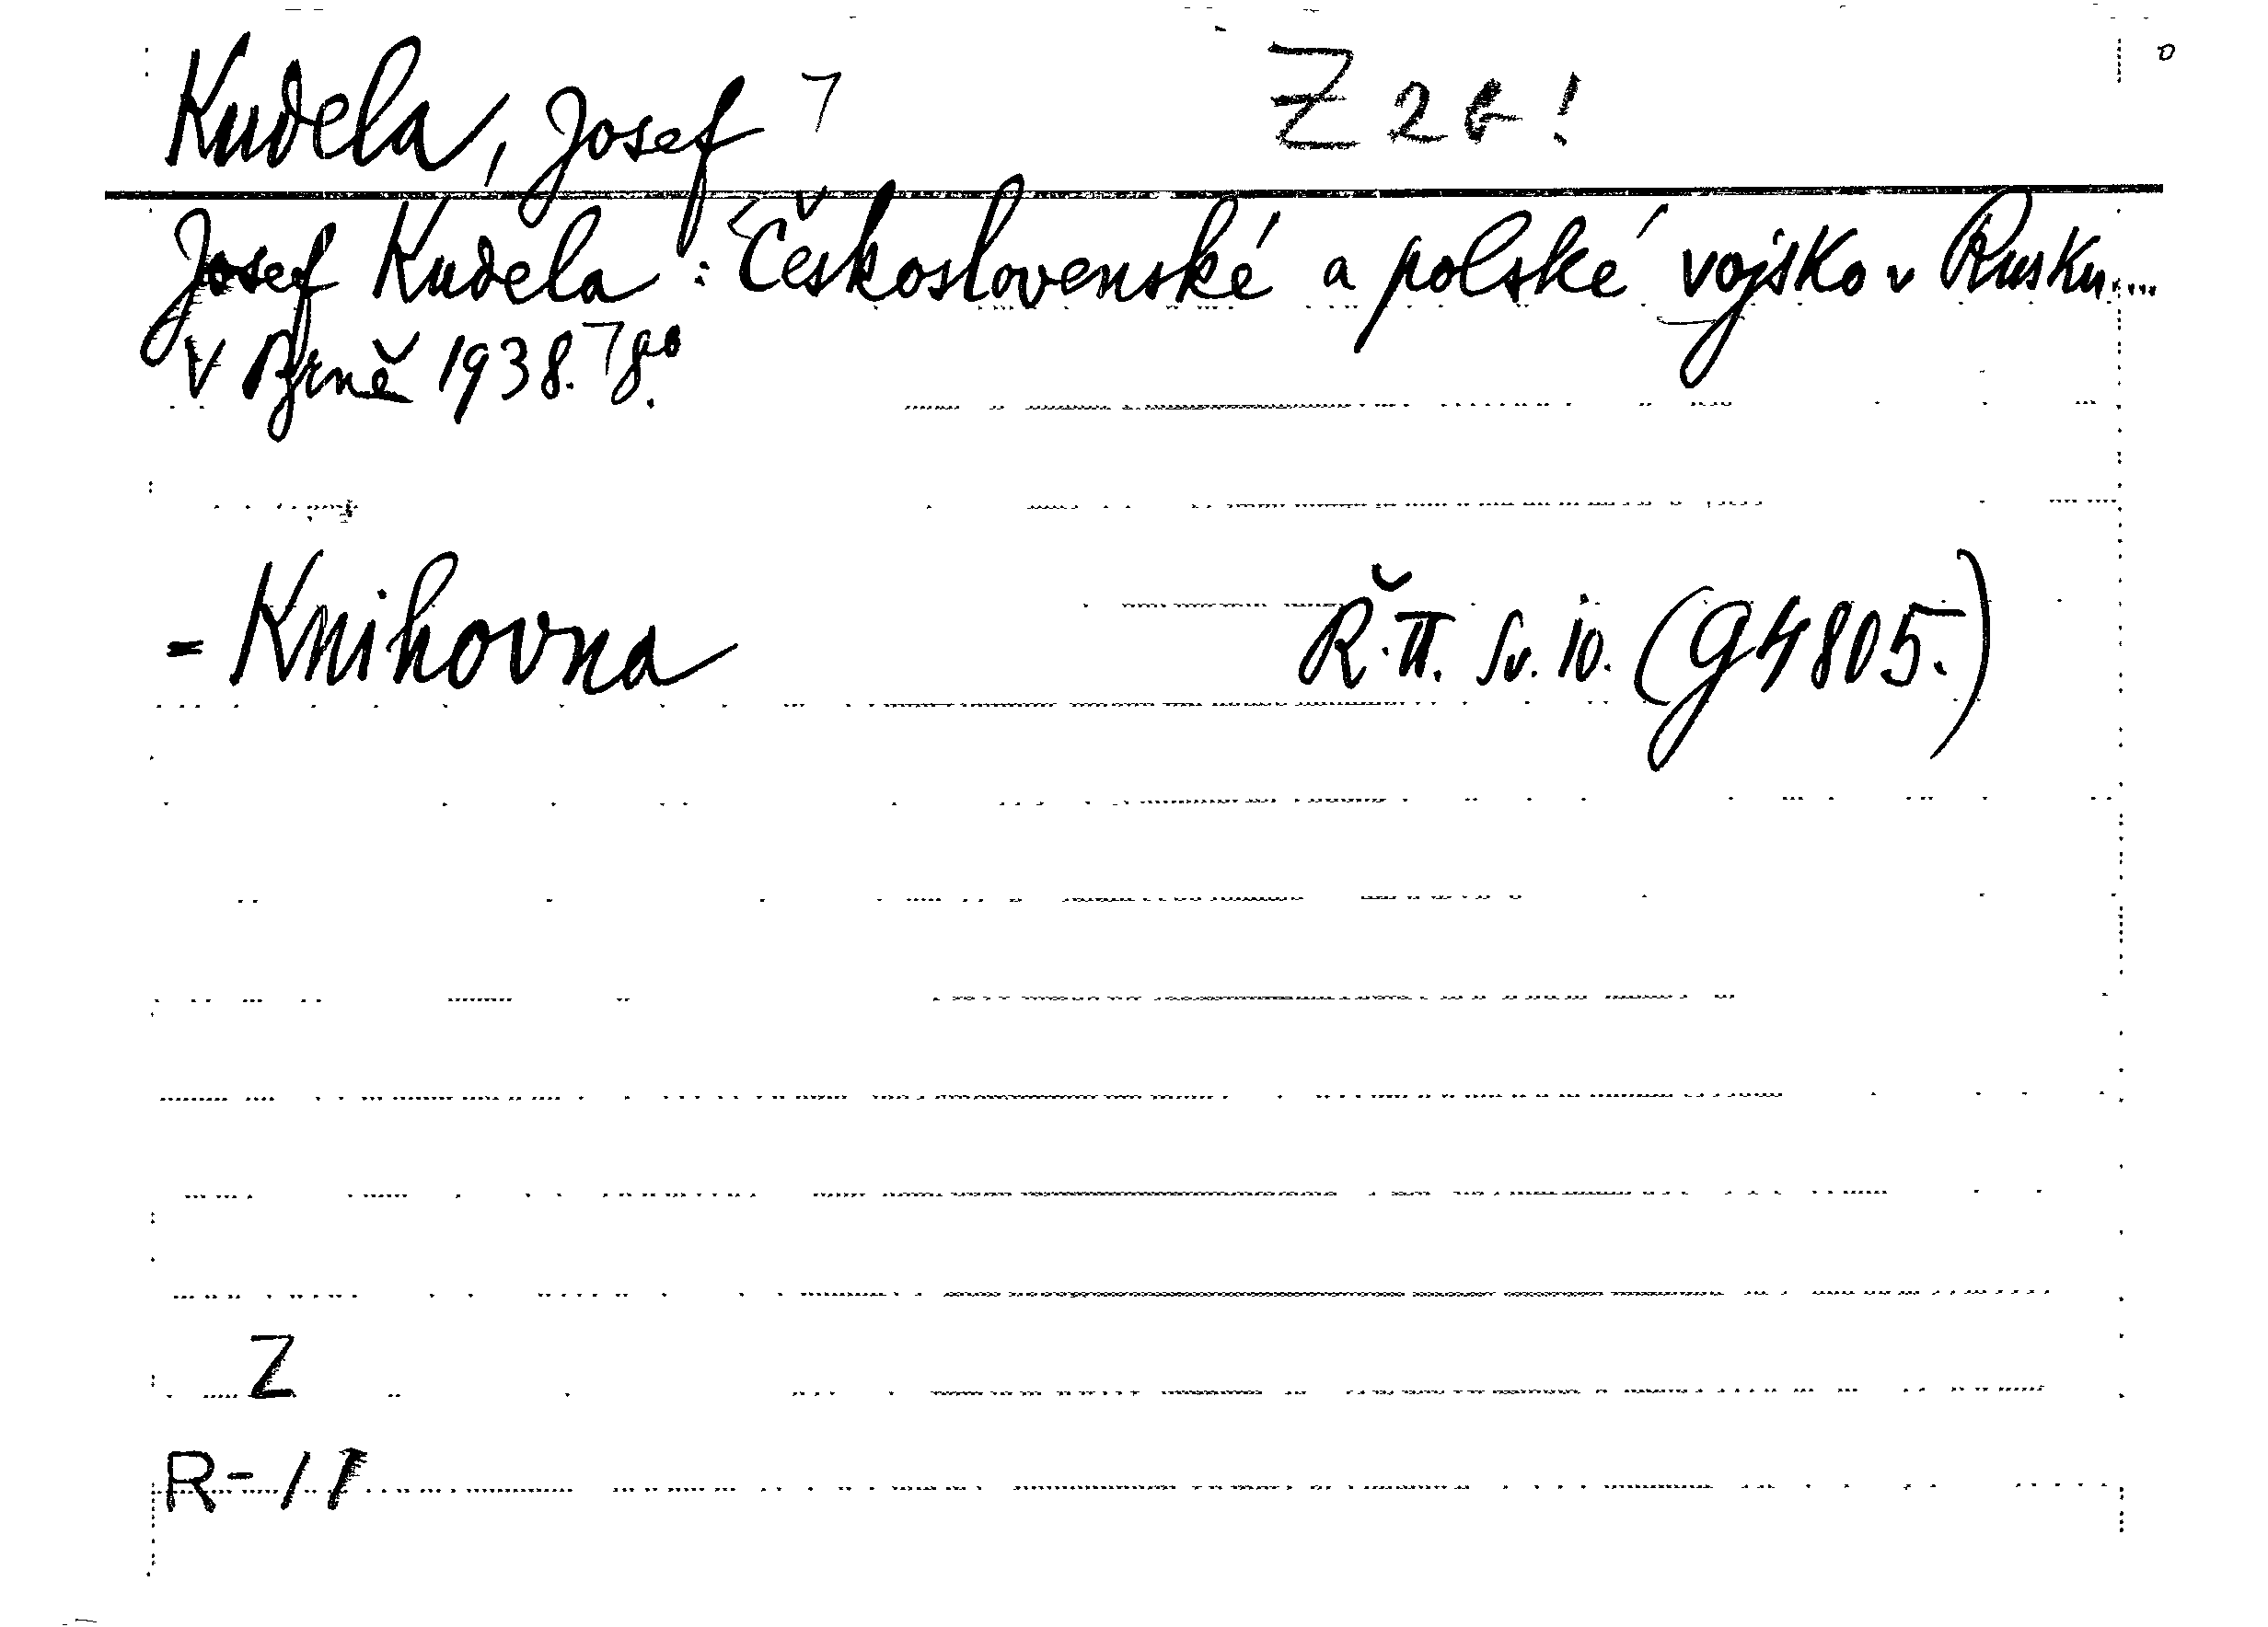 Kudela, Josef Z 2b!
Josef Kudela: Československé a polské vojsko v Rusku....
V Brně 1938. 8°.
= Knihovna Ř. II. Sv. 10. (G4805.)
Z
R-11